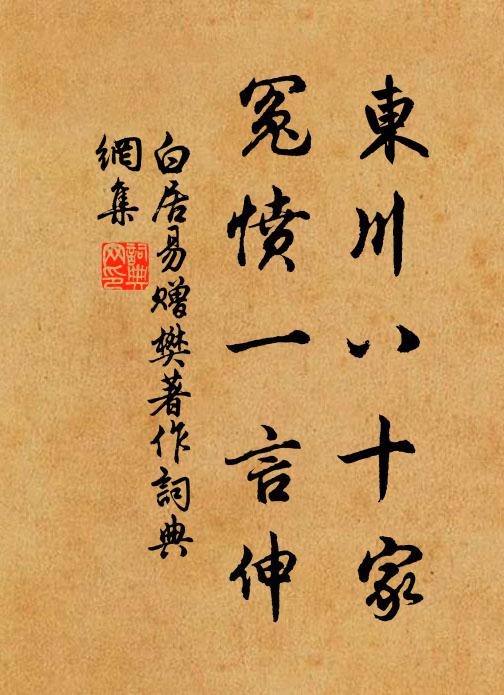 東川八十家
冤憤一言伸
白居易贈樊著作詞典
網集
詞典網印